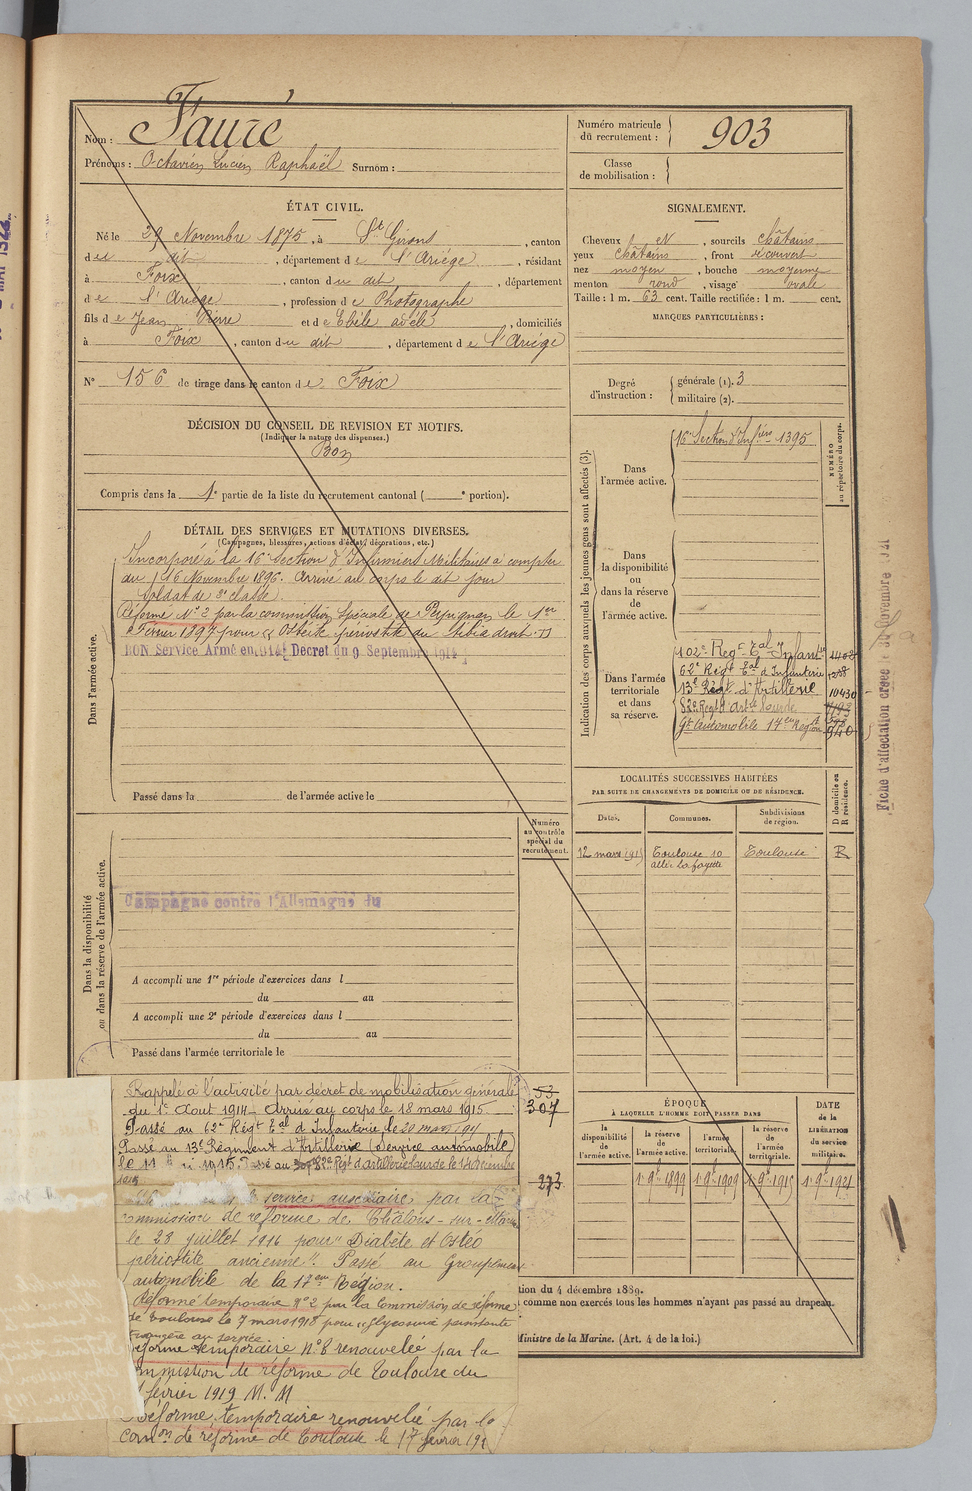 Nom : Fauré
Prénoms : Octavien Lucien Raphaël Surnom :
Numéro matricule du recrutement : 903
Classe de mobilisation :
ÉTAT CIVIL.
Né le 29 Novembre 1875, à St Girons, canton
du dit, département de l'Ariège, résidant
à Foix, canton du dit, département
de l'Ariège, profession de Photographe
fils de Jean Pierre et de Ebéle adèle, domiciliés
à Foix, canton du dit, département de l'Ariège
N° 156 de tirage dans le canton de Foix
SIGNALEMENT.
Cheveux et sourcils châtains
yeux châtains, front découvert
nez moyen, bouche moyenne
menton rond, visage ovale
Taille : 1 m. 63 cent. Taille rectifiée : 1 m. cent.
MARQUES PARTICULIÈRES :
Degré d'instruction : générale (1). 3
militaire (2).
DÉCISION DU CONSEIL DE REVISION ET MOTIFS.
(Indiquer la nature des dispenses.)
Bon
Compris dans la 1e partie de la liste du recrutement cantonal ( e portion).
DÉTAIL DES SERVICES ET MUTATIONS DIVERSES.
(Campagnes, blessures, actions d'éclat, décorations, etc.)
Dans l'armée active.
Incorporé à la 16e Section d'Infirmiers Militaires à compter
du 16 Novembre 1896. Arrivé au corps le dit jour
Soldat de 2e classe.
Réformé N° 2 par la commission spéciale de Perpignan le 1er
Février 1897 pour « Ostéite périostite du tibia droit »
BON Service Armé en 1914 Decret du 9 Septembre 1914
Passé dans la de l'armée active le
Indication des corps auxquels les jeunes gens sont affectés (3).
NUMÉRO au répertoire du corps.
Dans l'armée active.
16e Section d'Infiers 1395
Dans la disponibilité ou dans la réserve de l'armée active.
Dans l'armée territoriale et dans sa réserve.
102e Regt Eal Infanterie
62e Régt Eal d'Infanterie
13e Régt d'Artillerie 10430
82e Régt d'Artie Lourde
Gt Automobile 17eme Région 940
Fiche d'affectation créée le Novembre
LOCALITÉS SUCCESSIVES HABITÉES
PAR SUITE DE CHANGEMENTS DE DOMICILE OU DE RÉSIDENCE.
Dates. Communes. Subdivisions de région. D domicile ou R résidence.
12 mars 1915 Toulouse 10 allée Lafayette Toulouse R
Numéro au contrôle spécial du recrutement.
Dans la disponibilité ou dans la réserve de l'armée active.
Campagne contre l'Allemagne du
A accompli une 1re période d'exercices dans l
du au
A accompli une 2e période d'exercices dans l
du au
Passé dans l'armée territoriale le
Rappelé à l'activité par décret de mobilisation générale
du 1er Aout 1914 - Arrivé au corps le 18 mars 1915
Passé au 62e Régt Eal d'Infanterie le 20 mars 1915
Passé au 13e Régiment d'Artillerie (Service automobile)
le 11 1915. Passé au 82e Régt d'artillerie lourde le 1er décembre
1915
service auxiliaire par la
commission de réforme de Châlons-sur-Marne
le 23 juillet 1916 pour "Diabète et Ostéo
périostite ancienne". Passé au Groupement
automobile de la 17eme Région.
Réformé temporaire N° 2 par la Commission de réforme
de Toulouse le 7 mars 1918 pour « glycosurie persistante
étrangère au service.
Réforme temporaire N° 2 renouvelée par la
commission de réforme de Toulouse du
février 1919 M. M
Réforme temporaire renouvelée par la
comon de réforme de Toulouse le 17 février
53
307
273
ÉPOQUE
À LAQUELLE L'HOMME DOIT PASSER DANS
la disponibilité de l'armée active.
la réserve de l'armée active.
l'armée territoriale.
la réserve de l'armée territoriale.
DATE de la LIBÉRATION du service militaire.
1er 9bre 1899 1er 9bre 1909 1er 9bre 1915 1er 9bre 1921
tion du 4 décembre 1889.
comme non exercés tous les hommes n'ayant pas passé au drapeau.
Ministre de la Marine. (Art. 4 de la loi.)